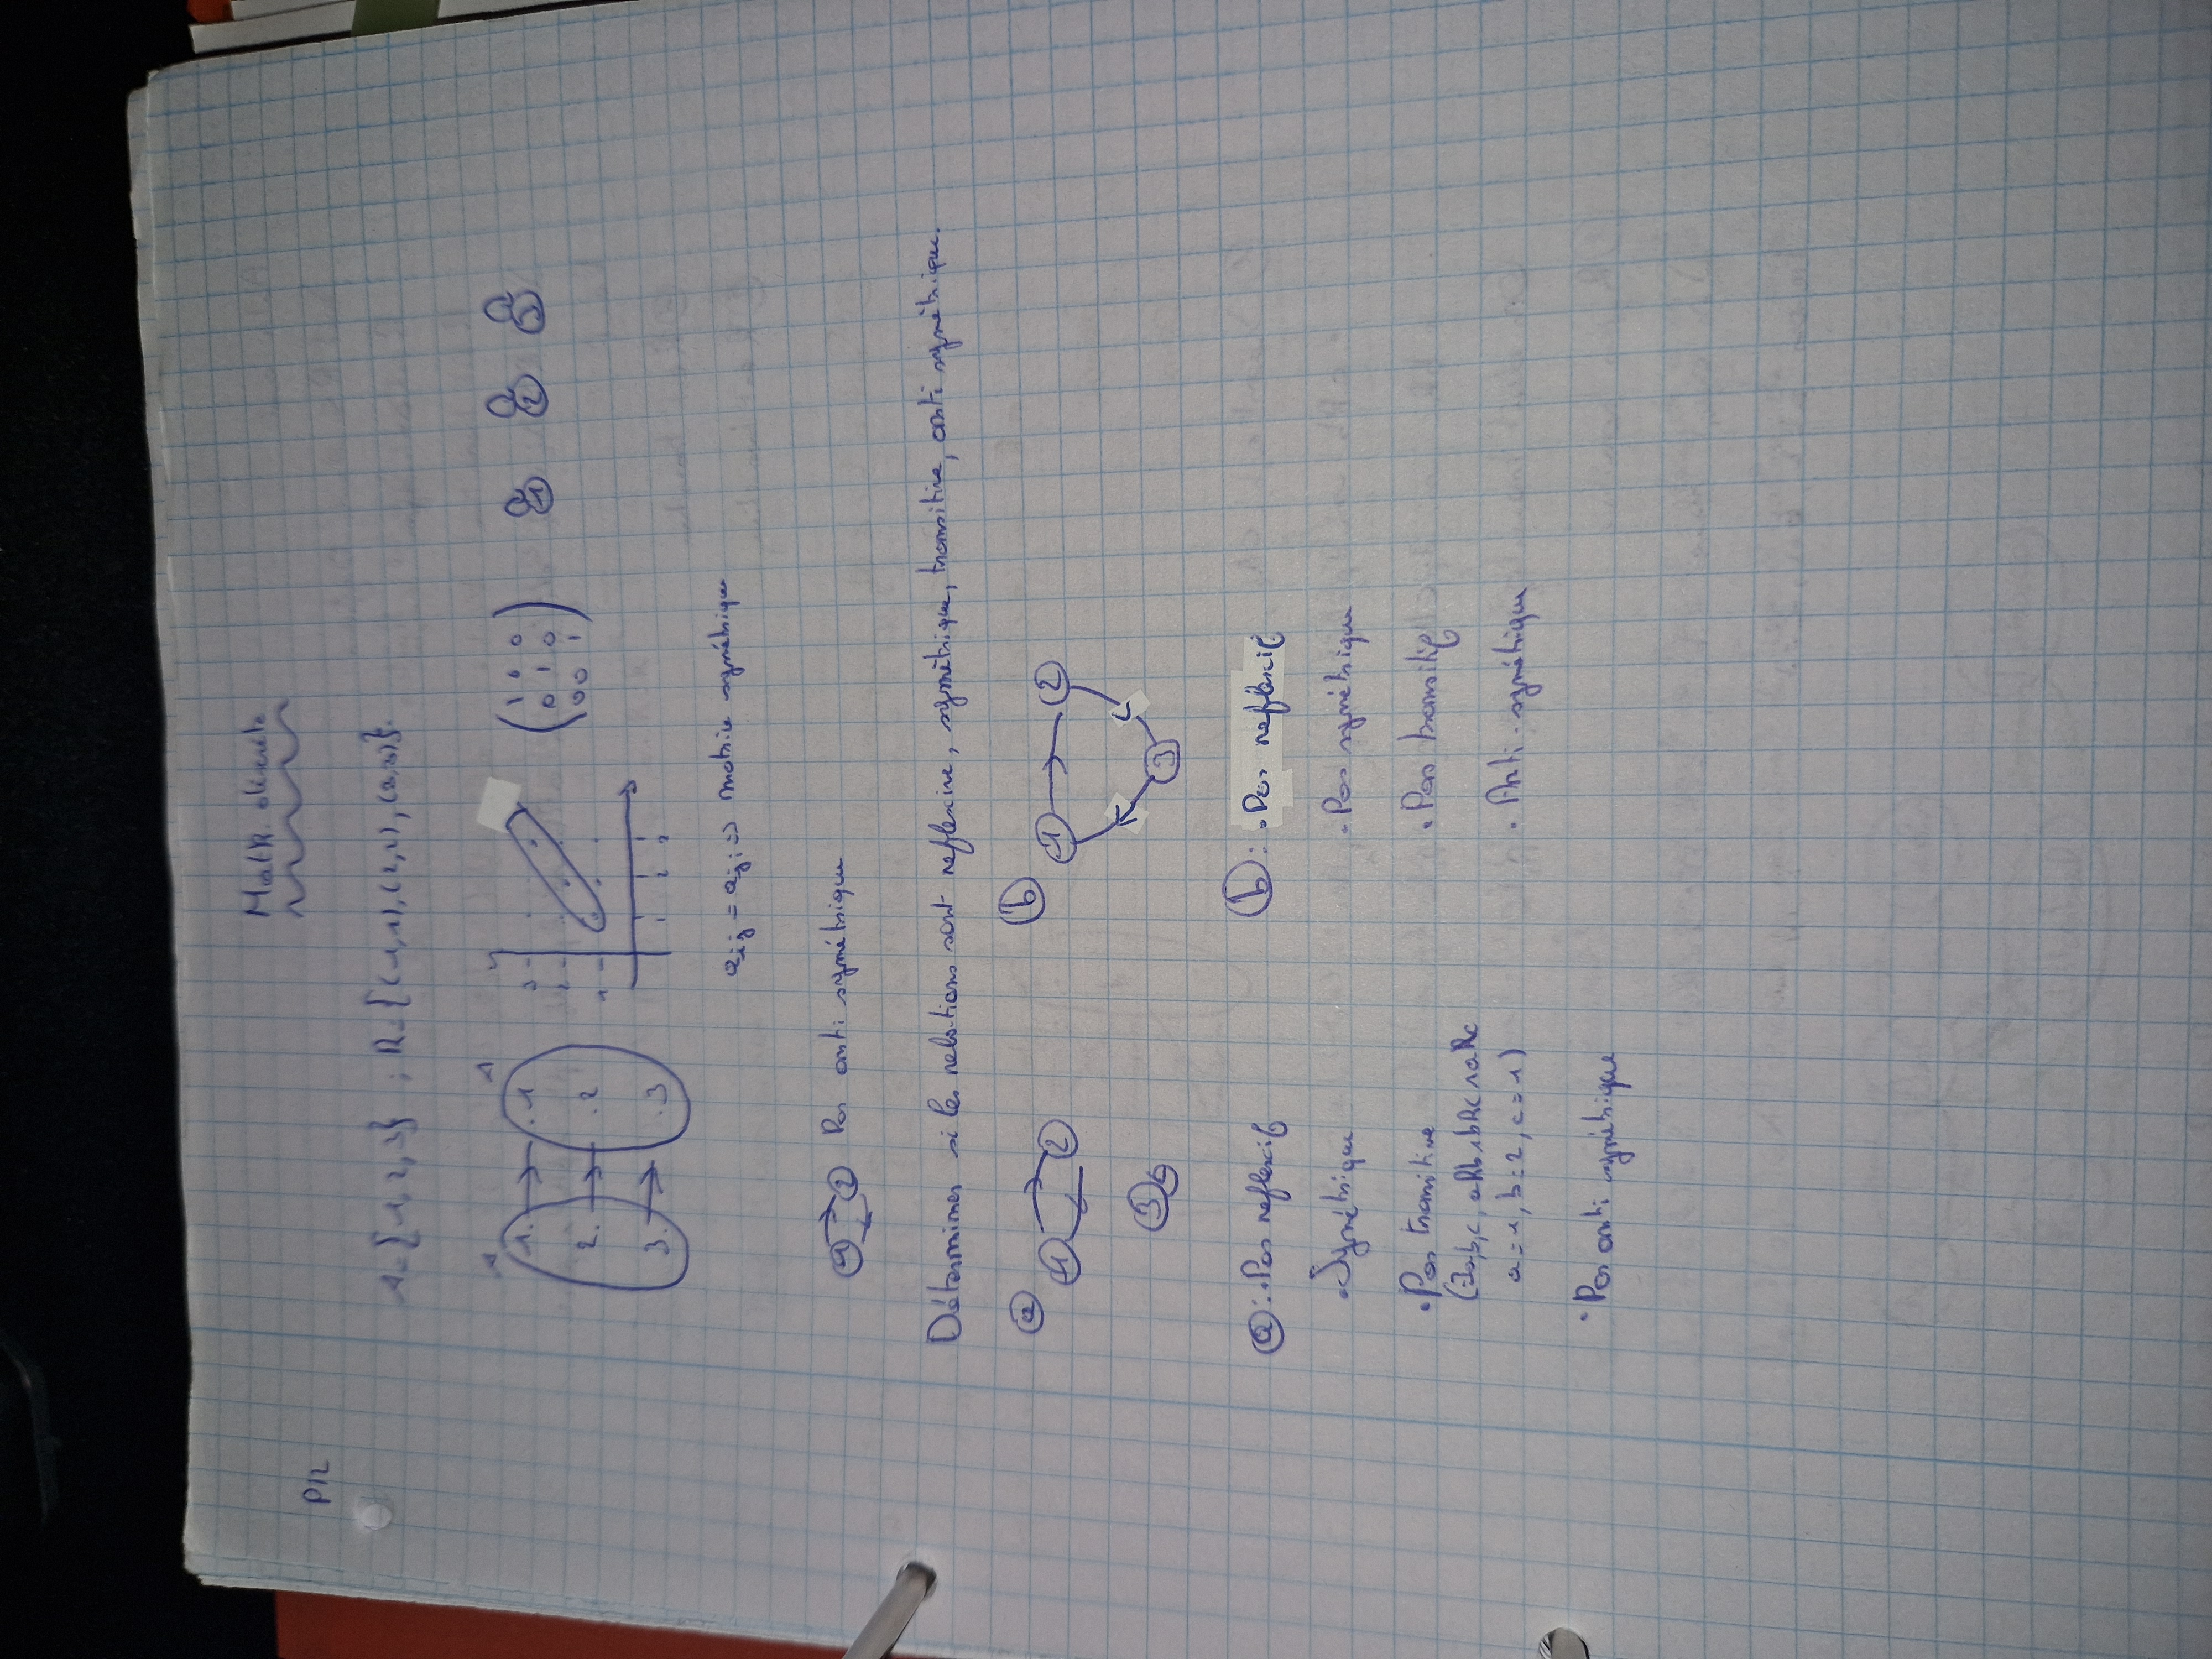 Math. discrète
P12
A={1,2,3} ; R={(1,1),(2,2),(3,3)}.
A A
1. .1
2. .2
3. .3
3
2
1
1 2 3
1 0 0
0 1 0
0 0 1
1 2 3
aij = aji => matrice symétrique
1 2 Pas anti symétrique
Déterminer si les relations sont reflexive, symétrique, transitive, anti symétrique.
a 1 2
3
b 1 2
3
a : . Pas reflexif
. Symétrique
. Pas transitive
(∃a,b,c, aRb∧bRc∧aRc
a=1, b=2, c=1)
. Pas anti symétrique
b : . Pas refléxif
. Pas symétrique
. Pas transitif
. Anti-symétrique